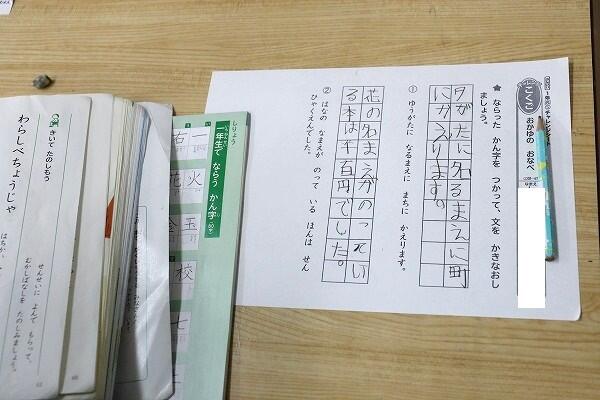 こくご
おかゆの おなべ
★ ならった かん字を つかって、文を かきなおし
ましょう。
夕がたになるまえに町
にかえります。
① ゆうがたに なるまえに まちに かえります。
花の名まえがのってい
る本は千百円でした。
② はなの なまえが のって いる ほんは せん
ひゃくえんでした。
しりょう
一年生で ならう かん字
一
火
玉
校
七
右
花
金
きいて たのしもう
わらしべちょうじゃ
せんせいに よんで もらって、
むかしばなしを たのしみましょう。